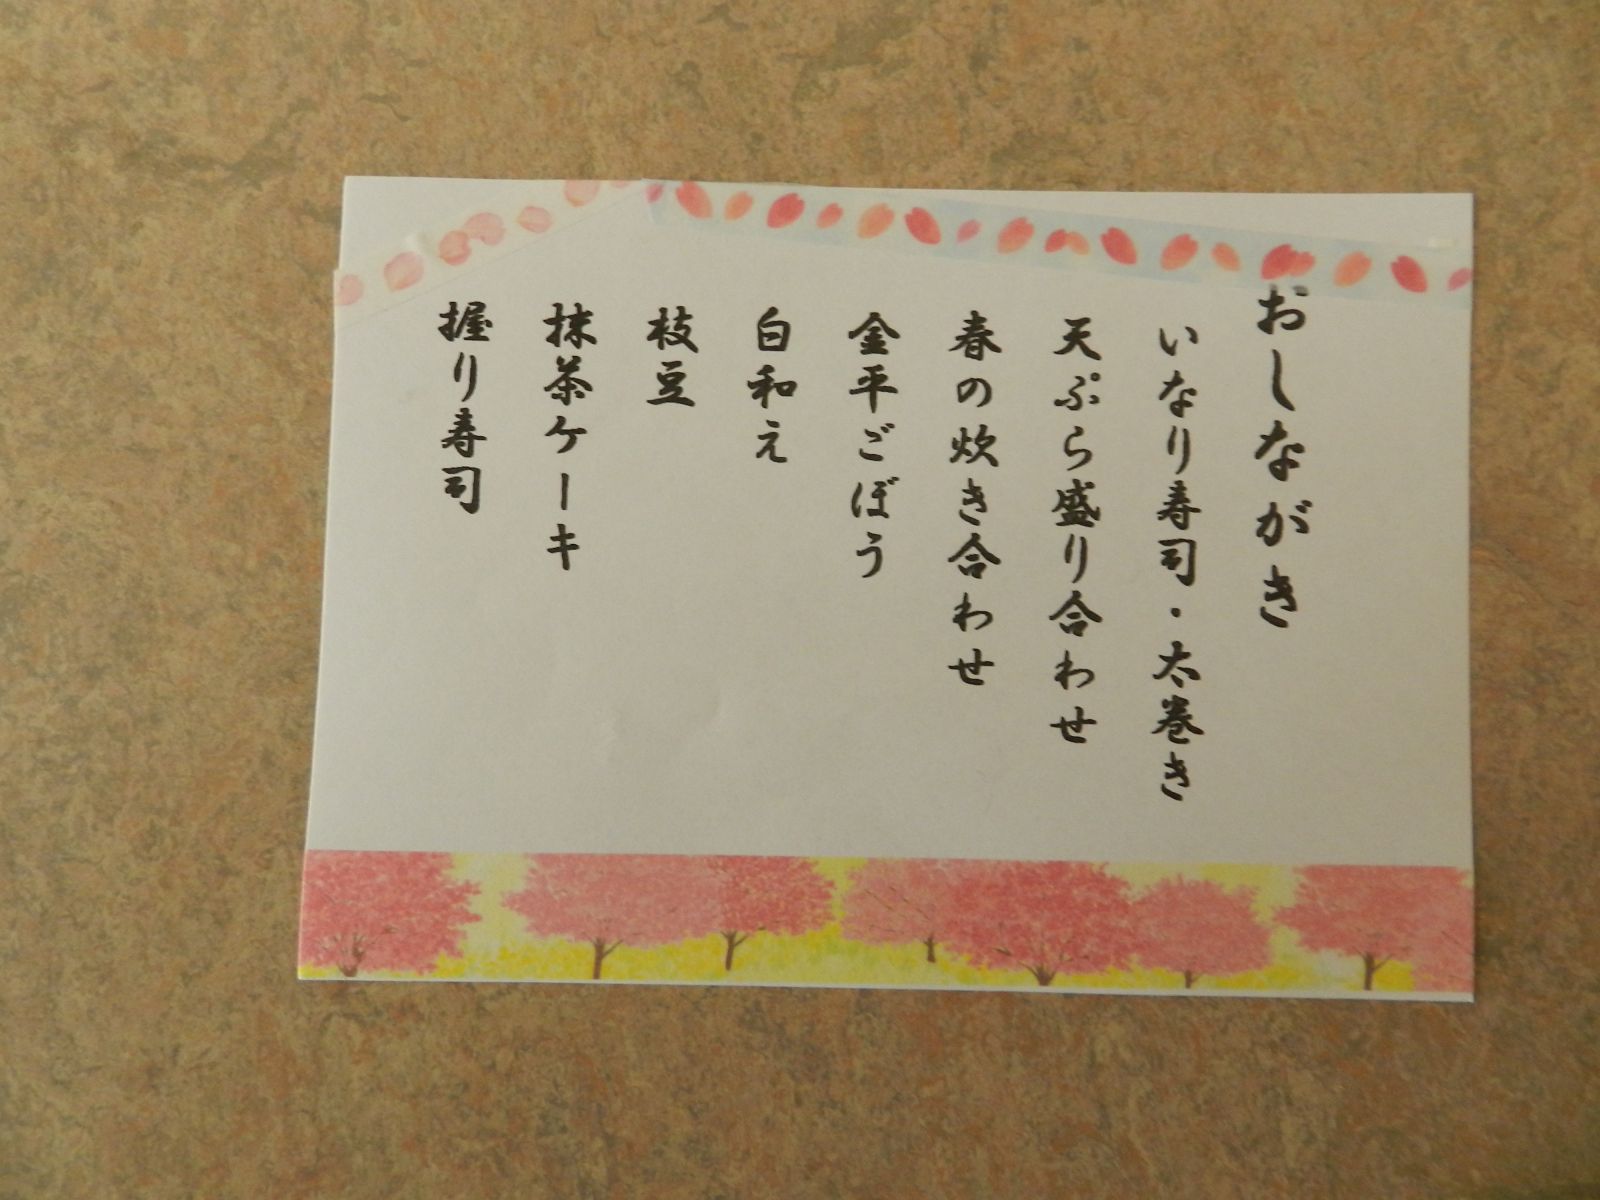 おしながき
いなり寿司・太巻き
天ぷら盛り合わせ
春の炊き合わせ
金平ごぼう
白和え
枝豆
抹茶ケーキ
握り寿司